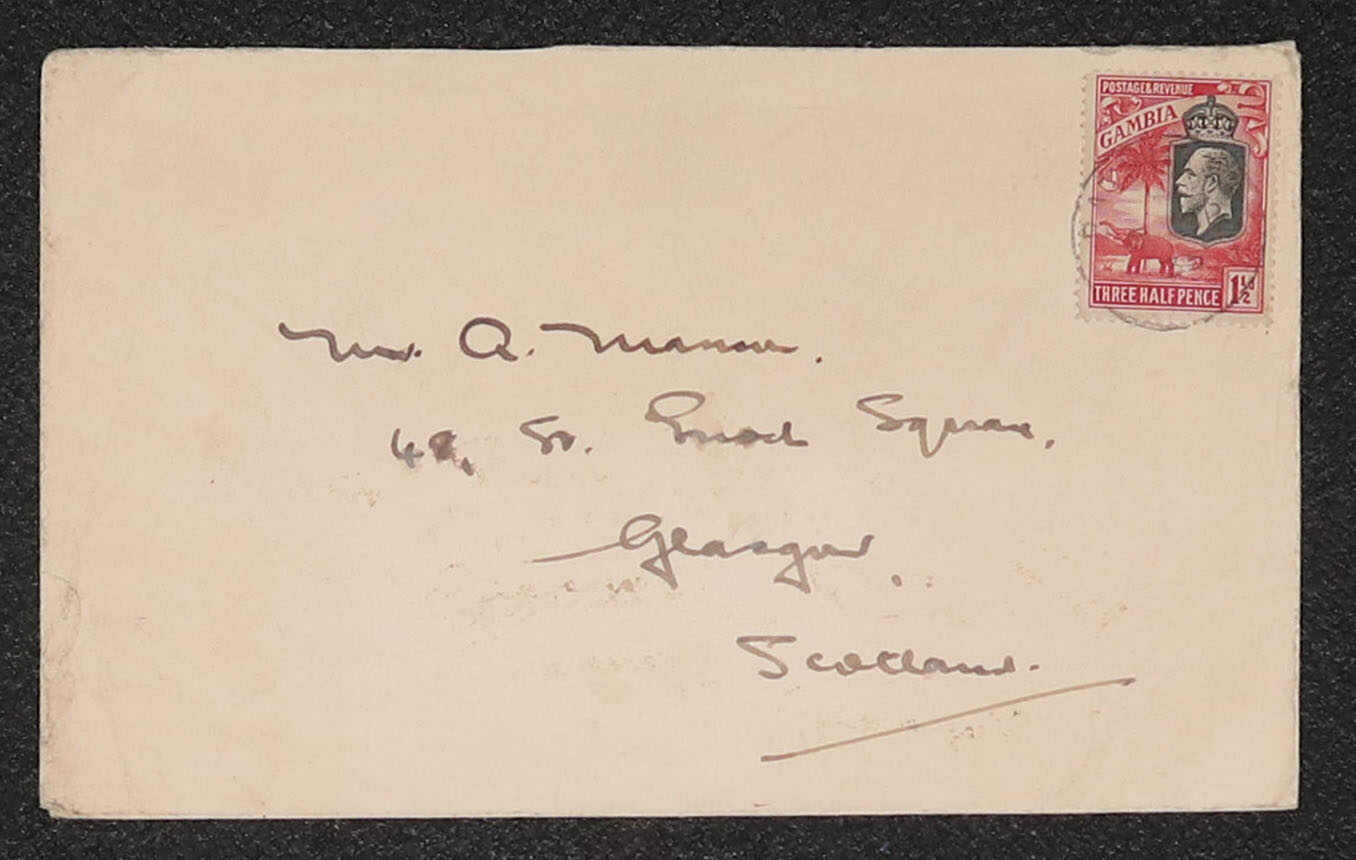 POSTAGE & REVENUE
GAMBIA
THREE HALF PENCE 1½d
Mr. A.
St. Enoch Square,
Glasgow,
Scotland.